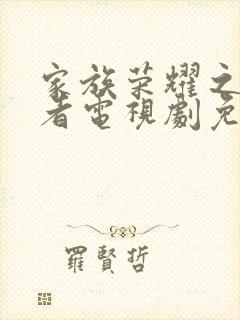 家族荣耀之
者電視劇免
羅賢哲